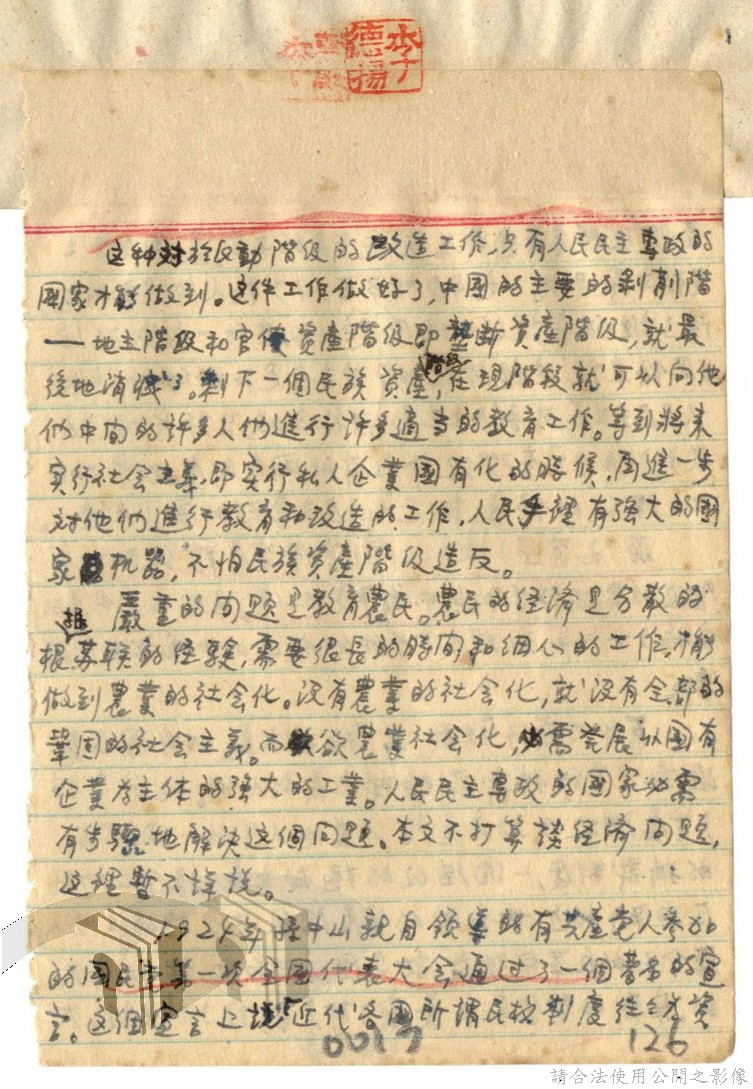 李
德揚
这种对於反動階級的改造工作,只有人民民主專政的
國家才能做到。这件工作做好了,中國的主要的剥削階
—地主階級和官僚資產階級即壟断資產階級,就最
後地消滅了。剩下一個民族資產階級,在現階段就可以向他
们中间的许多人们進行许多適当的教育工作。等到將来
实行社会主義,即实行私人企業國有化的時候,再進一步
对他们進行教育和改造的工作,人民手裡有强大的國
家机器,不怕民族資產階级造反。
嚴重的问题是教育農民。農民的经済是分散的
根据苏联的经験,需要很長的時间和细心的工作,才能
做到農業的社会化。没有農業的社会化,就没有全部的
鞏固的社会主義。而欲農業社会化,必需発展以國有
企業为主体的强大的工業。人民民主專政的國家必需
有步驟地解决这個问题。本文不打算談经済问题,
这裡暫不詳説。
1924年孫中山親自領導的有共產党人参加
的國民党第一次全國代表大会通过了一個著名的宣
言。这個宣言上説"近代各國所謂民权制度往往为資
0017
126
請合法使用公開之影像